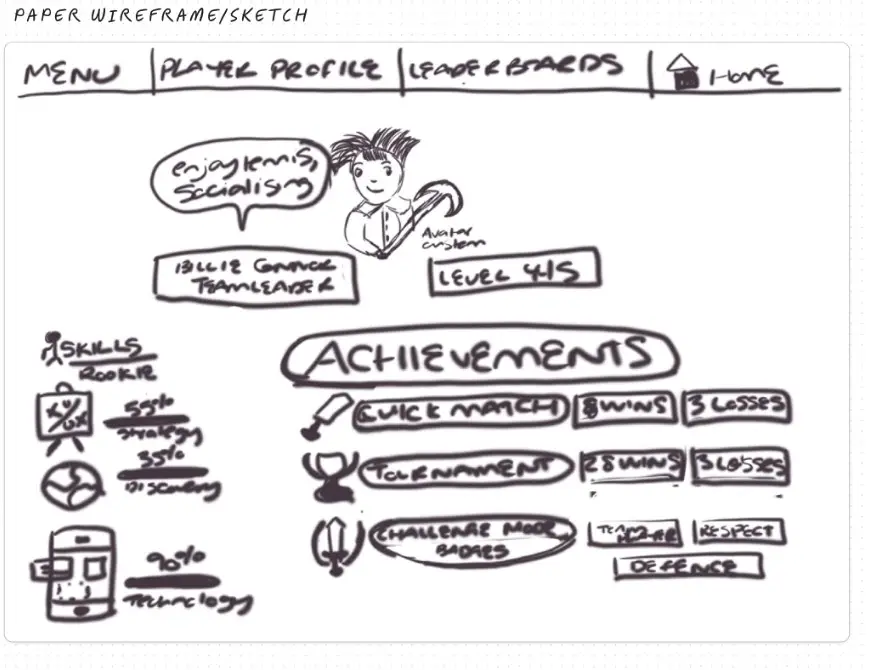 PAPER WIREFRAME/SKETCH
MENU
PLAYER PROFILE
LEADERBOARDS
HOME
enjoy tennis,
Socialising
Avatar
custom
BILLIE
TEAMLEADER
LEVEL 4/5
SKILLS
ROOKIE
55%
Strategy
35%
DISCOVERY
90%
TECHNOLOGY
ACHIIEVEMENTS
QUICK MATCH
8 WINS
3 LOSSES
TOURNAMENT
28 WINS
3 LOSSES
CHALLENGE MODE
BADGES
TEAM
RESPECT
DEFENCE